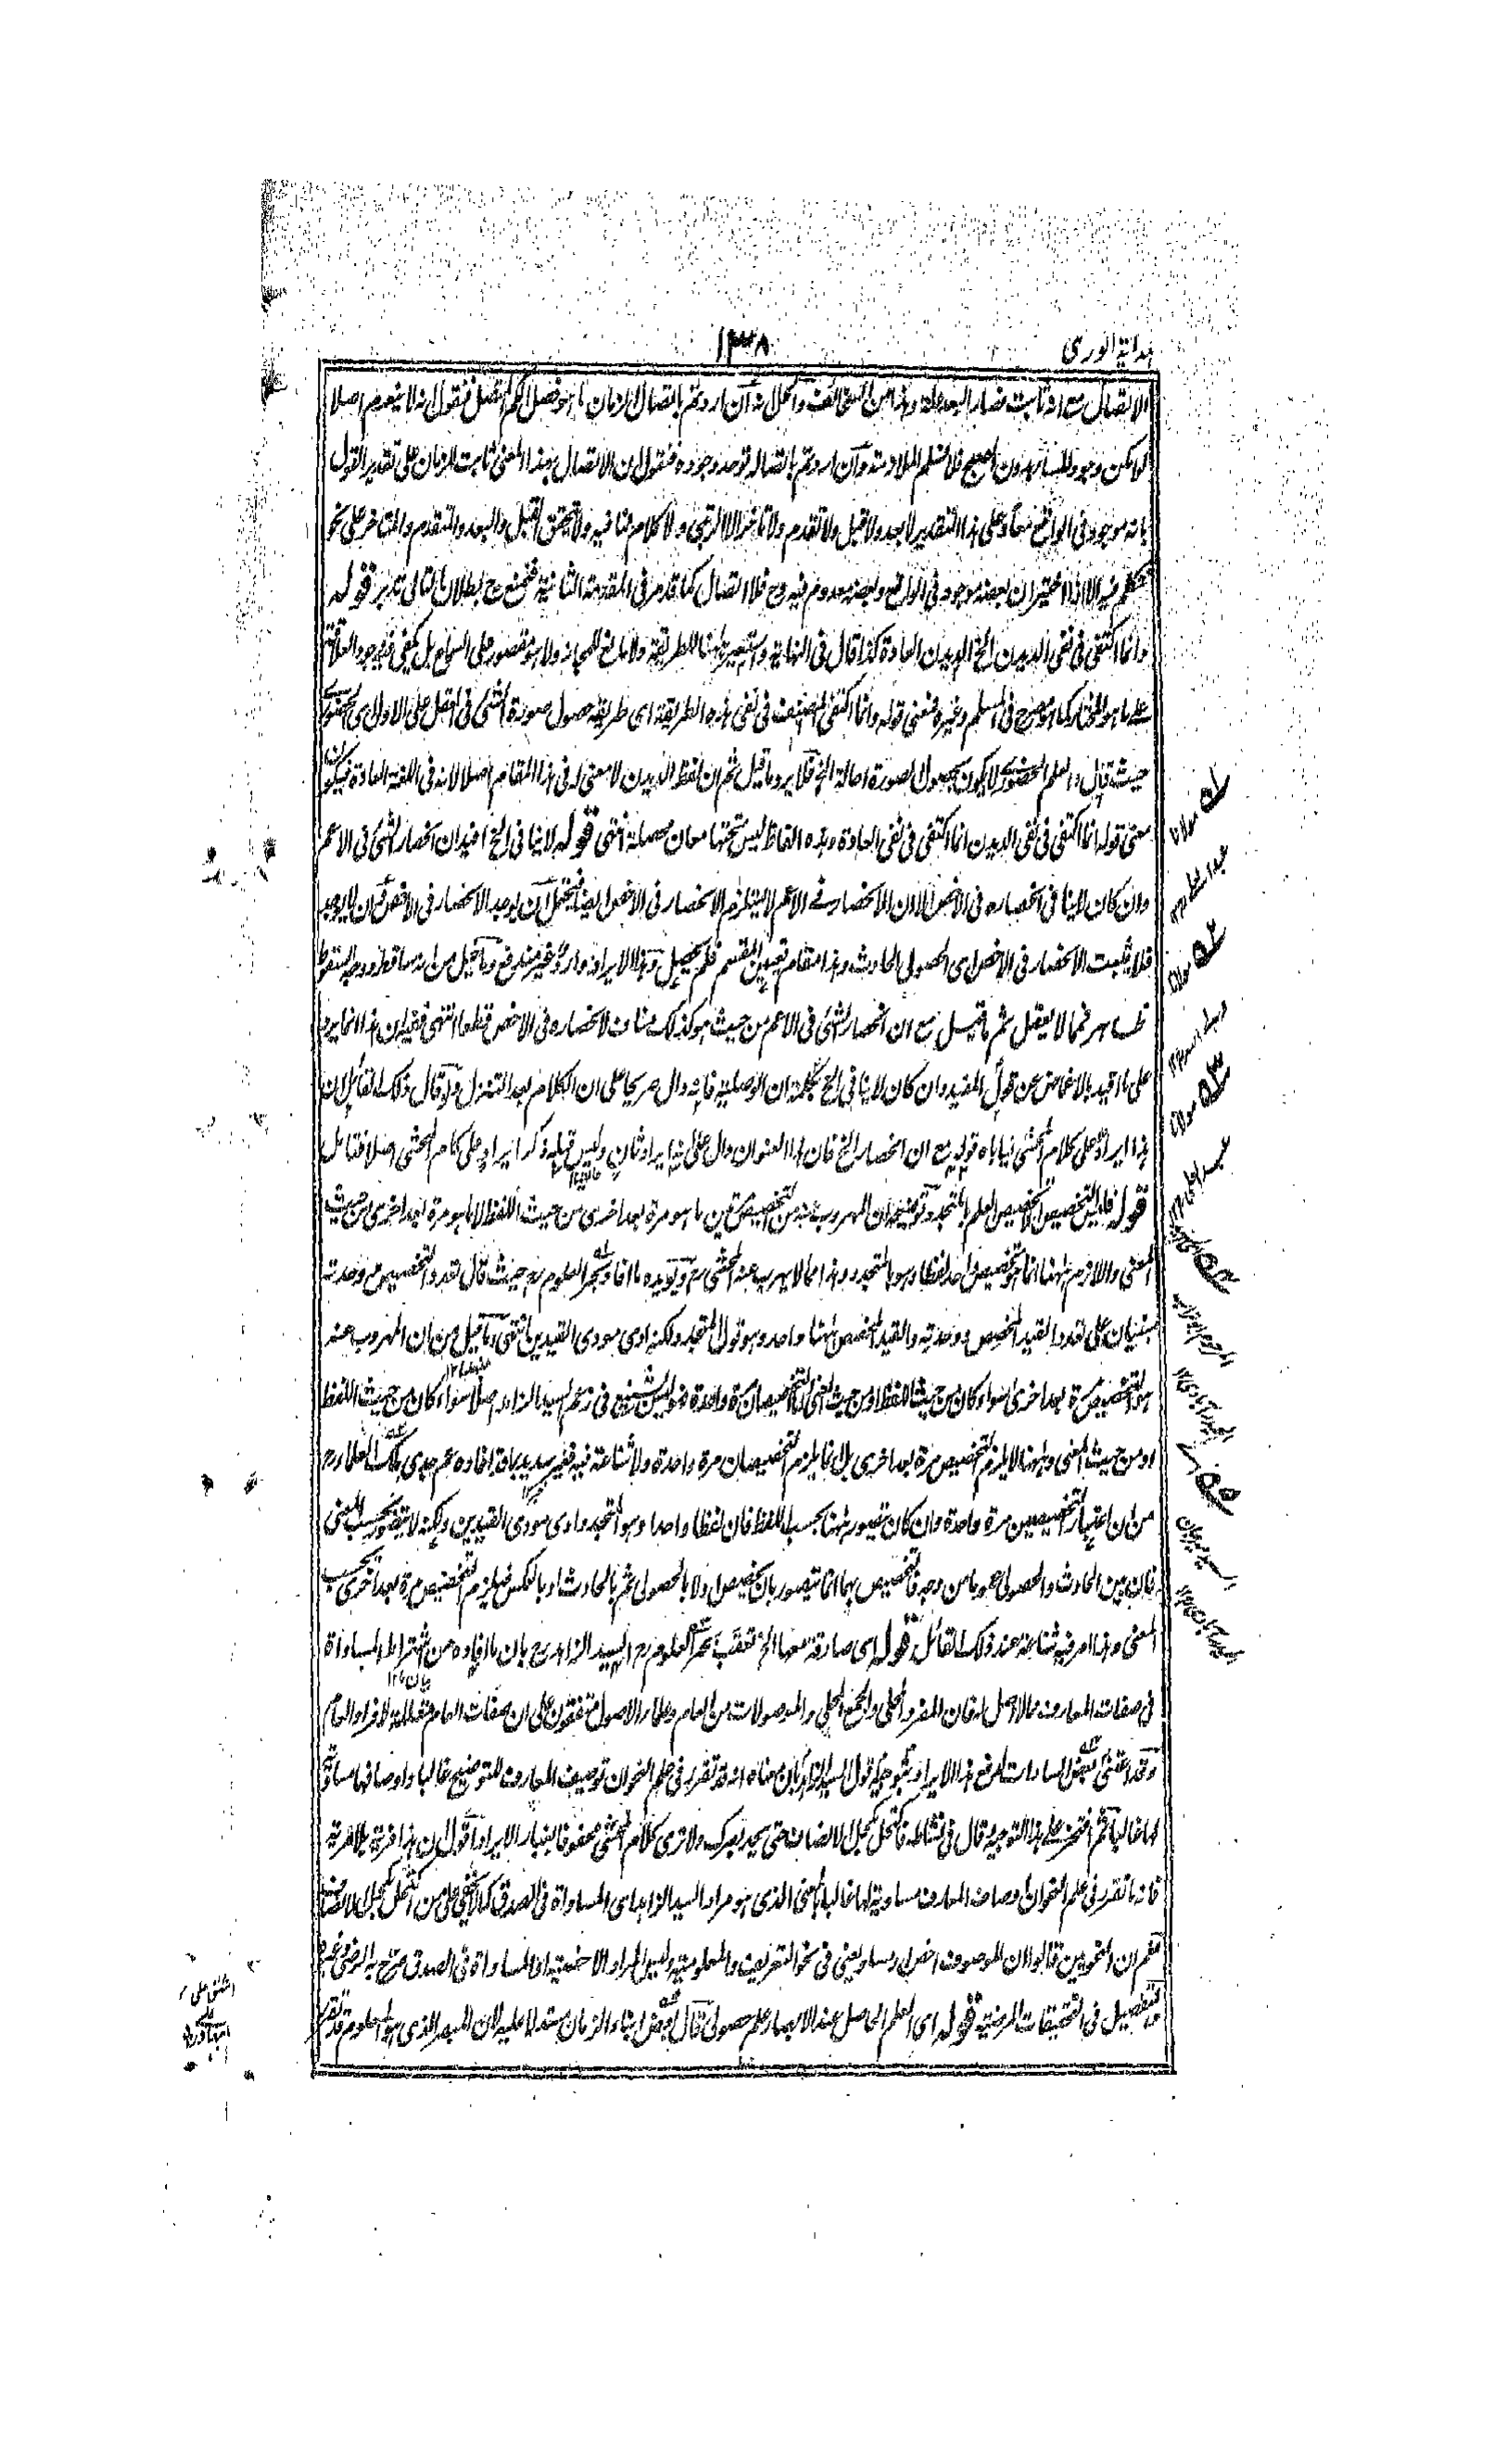 هداية الورى
١٣٨
الاتصال مع انه ثابت فصار البعد علة وهذا من السخائف والحل انه ان اردتم باتصال الزمان ما هو فصل الكم المتصل فنقول انه لا ينعدم اصلا
وجود بدون فلا نسلم الملازمة وان اردتم باتصاله توحد وجوده فنقول ان الاتصال بهذا المعنى ثابت للزمان على تقدير القول
بانه موجود فى الواقع معا وعلى هذا التقدير لا بعد ولا قبل ولا تقدم ولا تأخر الا الرتبى ولا كلام لنا فيه ولا تحقق القبل والبعد والمتقدم والمتاخر على نحو
تكلم فيه الا اذا اختير ان بعضه موجود فى الواقع وبعضه معدوم فيه وح فلا اتصال كما قد مر فى المقدمة الثانية فنمنع ح بطلان التالى تدبر قوله
وانما اكتفى فى نفى الديدن الخ الديدن العادة كذا قال فى النهاية واستعير ههنا للطريقة ولا مانع للمجاز ولا هو مقصور على السماع بل يكفى فيه وجود العلاقة
على ما هو المختار كما هو مصرح فى المسلم وغيره فمعنى قوله وانما اكتفى المصنف فى نفى هذه الطريقة اى طريقة حصول صورة الشئ فى العقل على الاول اى الحضورى
حيث قال والعلم الحضورى لا يكون بحصول الصورة احالة الخ فلا يرد ما قيل ثم ان لفظ الديدن لا معنى له فى هذا المقام اصلا لانه فى اللغة العادة فيكون
معنى قوله انما اكتفى فى نفى الديدن انما اكتفى فى نفى العادة وهذه الفاظ ليس تحتها معان محصلة انتهى قوله لا ينافى الخ افيد ان انحصار الشئ فى الاعم
وان كان لا ينافى انحصاره فى الاخص الا ان الانحصار فى الاعم لا يستلزم الانحصار فى الاخص ايضا فيحتمل ان يوجد الانحصار فى الاخص وان لا يوجد
فلا يثبت الانحصار فى الاخص اى الحصولى الحادث وهذا مقام تعيين المقسم فلم يحصل وهذا الايراد وارد غير مندفع وما قيل من انه ساقط ووجه السقوط
ظاهر فمما لا يعقل ثم ما قيل مع ان انحصار الشئ فى الاعم من حيث هو كذلك مناف لانحصاره فى الاخص قطعا انتهى ففيه ان هذا انما يرد
على ما افيد بالاغماض عن قول المفيد وان كان لا ينافى الخ بكلمة ان الوصلية فانه دال صريحا على ان الكلام بعد التنزل ولو قال ذلك القائل ان
هذا ايراد على كلام المحشى اياباه قوله مع ان انحصار الخ فان هذا العنوان دال على انه ايراد ثان وليس قبله ذكر ايراد على كلام المحشى اصلا فتامل
قوله فليس التخصيص لتخصيص العلم بالمتجدد توضيحه ان المهروب عنه من التخصيصين ما هو مرة بعد اخرى من حيث اللفظ لا ما هو مرة بعد اخرى من حيث
المعنى واللازم ههنا انما هو تخصيص واحد لفظا وهو بالمتجدد وهذا مما لا يهرب عنه المحشى رح ويؤيده ما افاد بحر العلوم رح حيث قال تعدد التخصيص ووحدته
مبنيان على تعدد القيد المخصص ووحدته والقيد المخصص ههنا واحد وهو قوله المتجدد ولكنه ادى مودى القيدين انتهى وما قيل من ان المهروب عنه
هو التخصيص مرة بعد اخرى سواء كان من حيث اللفظ او من حيث المعنى واما التخصيصان مرة واحدة فهو ليس بشنيع فى زعم السيد الزاهد اصلا سواء كان من حيث اللفظ
او من حيث المعنى وههنا لا يلزم التخصيص مرة بعد اخرى بل انما يلزم التخصيصان مرة واحدة ولا شناعة فيه فغير سديد بما قد افاده عم جدى ملك العلماء رح
من ان اعتبار التخصيصين مرة واحدة وان كان متصور ههنا بحسب اللفظ فان لفظا واحدا وهو المتجدد ادى مودى القيدين ولكنه لا يتصور بحسب المعنى
فان بين الحادث والحصولى عموما من وجه فالتخصيص بهما انما يتصور بان يخصص اولا بالحصولى ثم بالحادث او بالعكس فيلزم التخصيص مرة بعد اخرى بحسب
المعنى وهذا امر فيه شناعة عند ذلك القائل قوله اى صارفة معها الخ تعقب بحر العلوم رح السيد الزاهد رح بان ما افاده من اشتراط المساواة
فى صفات المعارف مما لا اصل له فان المفرد المحلى والجمع المحلى والموصولات من العام وعلماء الاصول متفقون على ان صفات العام مقللة لافراد العام
وقد اعتنى بعض السادات لدفع هذا الايراد بتوجيه قول السيد الزاهد بان معناه انه قد تقرر فى علم النحو ان توصيف المعارف للتوضيح غالبا واوصافها مساوية
لها غالبا ثم افتخر على هذا التوجيه قال فى نشاطه فاكتحل بكحل الانصاف حتى يحد بصرك ولا ترى كلام المحشى محفوفا بغبار الايراد اقول ان هذا فرية بلا مرية
فانه ما تقرر فى علم النحو ان اوصاف المعارف مساوية لها غالبا بالمعنى الذى هو مراد السيد الزاهد اى المساواة فى الصدق كما لا يخفى على من اكتحل بكحل الانصاف
نعم ان النحويين قالوا ان الموصوف اخص او مساو يعنى فى نحو التعريف والمعلومية وليس المراد الاخصية او المساواة فى الصدق صرح به الرضى وغيره
والتفصيل فى التحقيقات المرضية قوله اى العلم الحاصل عند الابصار علم حصولى قال بعض ابناء الزمان مستدلا عليه لان المبصر الذى هو المعلوم قد تقرر